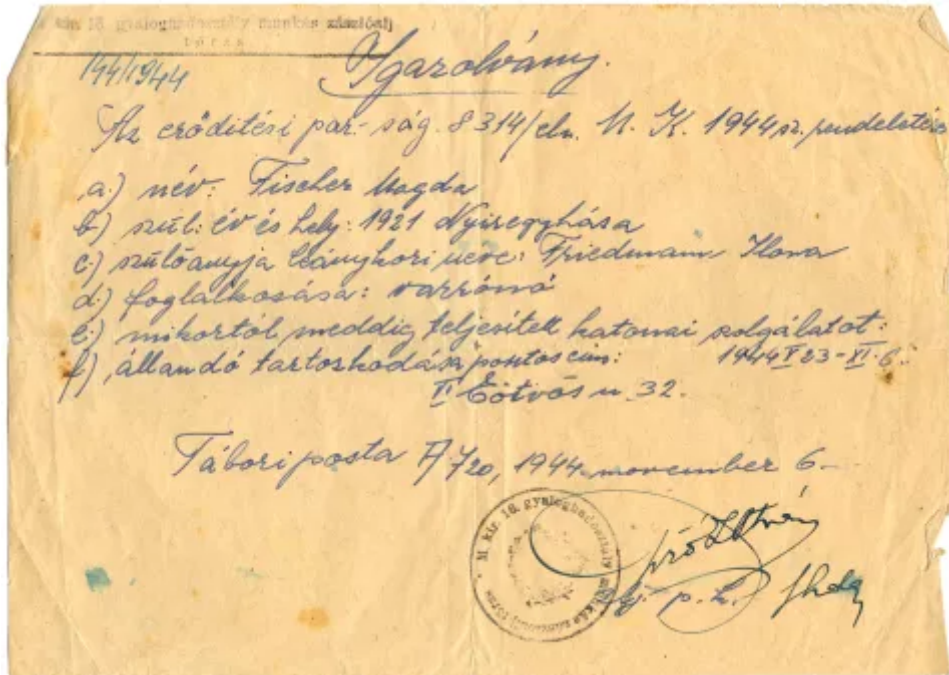 kir. 16. gyaloghadosztály munkás zászlóalj
törzs
144/1944
Igazolvány.
Az erőditési par-ság. 8314/eln. M. K. 1944 sz. rendeletére
a.) név: Fischer Magda
b.) szül: év és hely: 1921 Nyiregyhása
c.) szülőanyja leánykori neve: Friedmann Ilona
d.) foglalkosása: varrónő
e.) mikortól meddig teljesitett katonai szolgálatot:
1944 V 23-XI. 6.
f.) állandó tartoskodása postos cim:
Eötvös u. 32.
Tábori posta A 720, 1944 november 6-
M. kir. 16. gyaloghadosztály munkás zászlóalj törzs